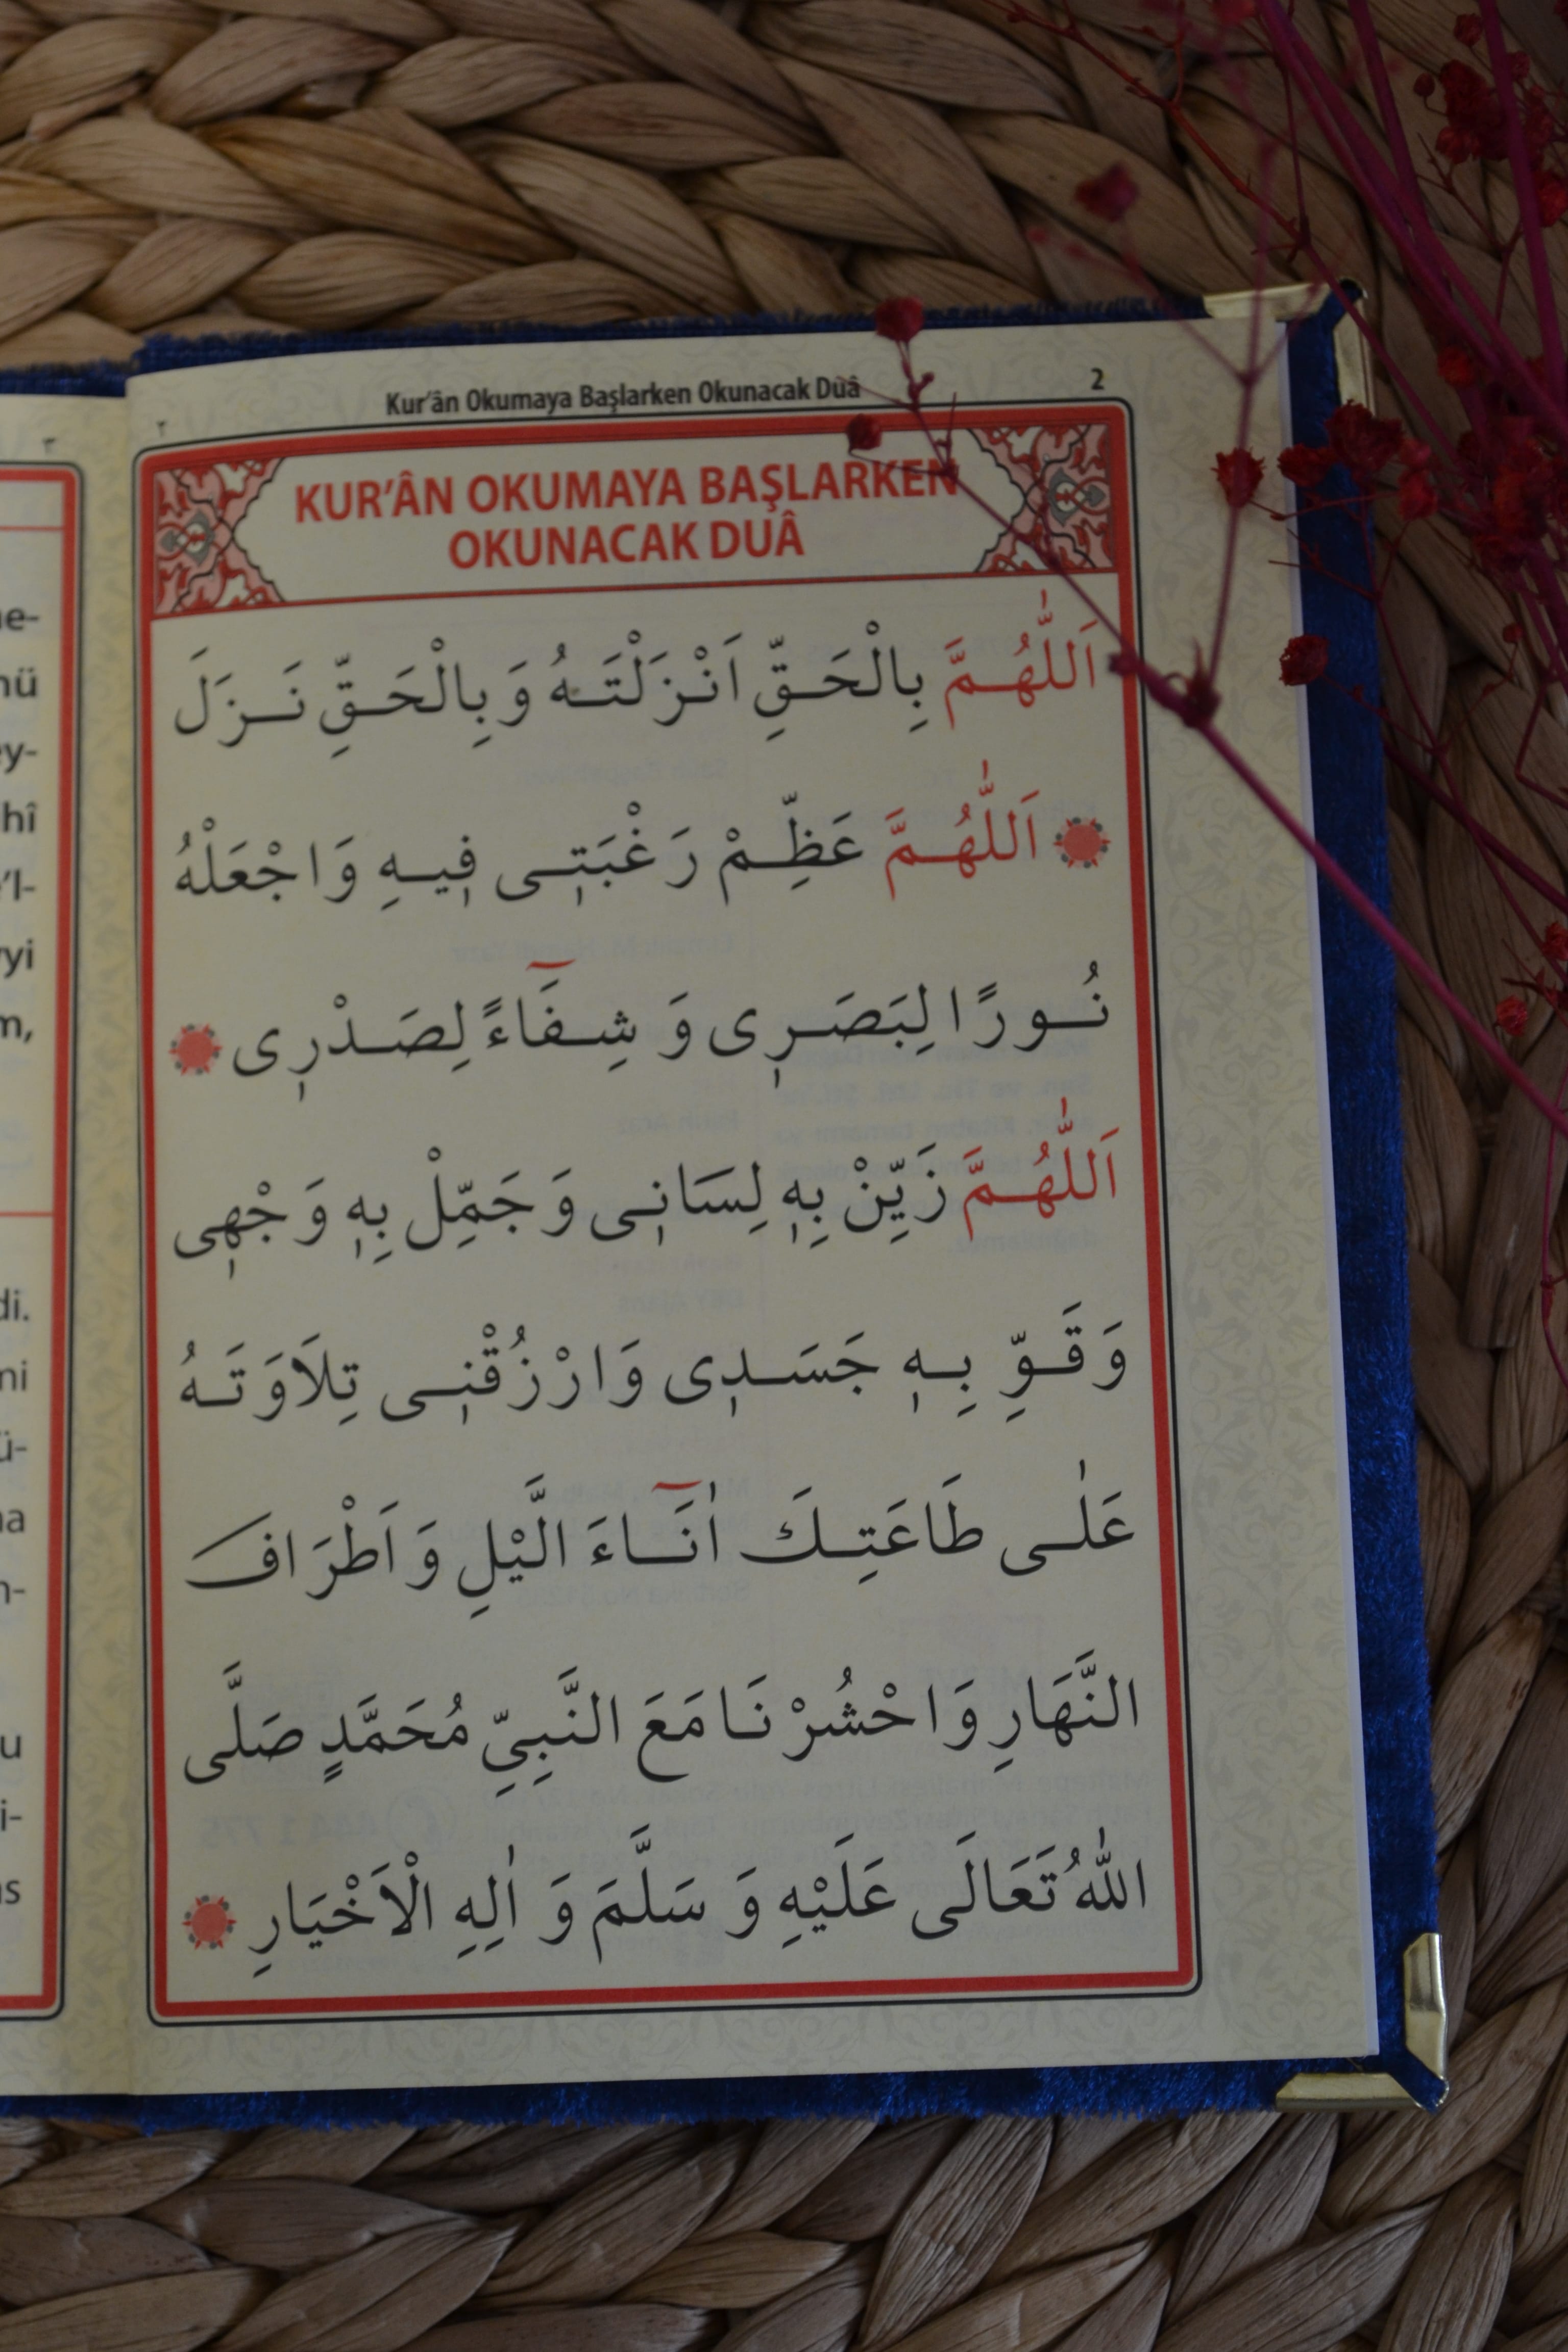 Kur'ân Okumaya Başlarken Okunacak Duâ
2
٢
KUR'ÂN OKUMAYA BAŞLARKEN
OKUNACAK DUÂ
اَللّٰهُمَّ بِالْحَقِّ اَنْزَلْتَهُ وَ بِالْحَقِّ نَزَلَ
اَللّٰهُمَّ عَظِّمْ رَغْبَتٖى فٖيهِ وَاجْعَلْهُ
نُورًا لِبَصَرٖى وَ شِفَٓاءً لِصَدْرٖى
اَللّٰهُمَّ زَيِّنْ بِهٖ لِسَانٖى وَ جَمِّلْ بِهٖ وَجْهٖى
وَ قَوِّ بِهٖ جَسَدٖى وَارْزُقْنٖى تِلَاوَتَهُ
عَلٰى طَاعَتِكَ اٰنَٓاءَ الَّيْلِ وَ اَطْرَافَ
النَّهَارِ وَاحْشُرْنَا مَعَ النَّبِيِّ مُحَمَّدٍ صَلَّى
اللّٰهُ تَعَالَى عَلَيْهِ وَ سَلَّمَ وَ اٰلِهِ الْاَخْيَارِ
٣
e-
nü
ey-
hî
'l-
yi
m,
di.
ni
ü-
a
u
i-
s